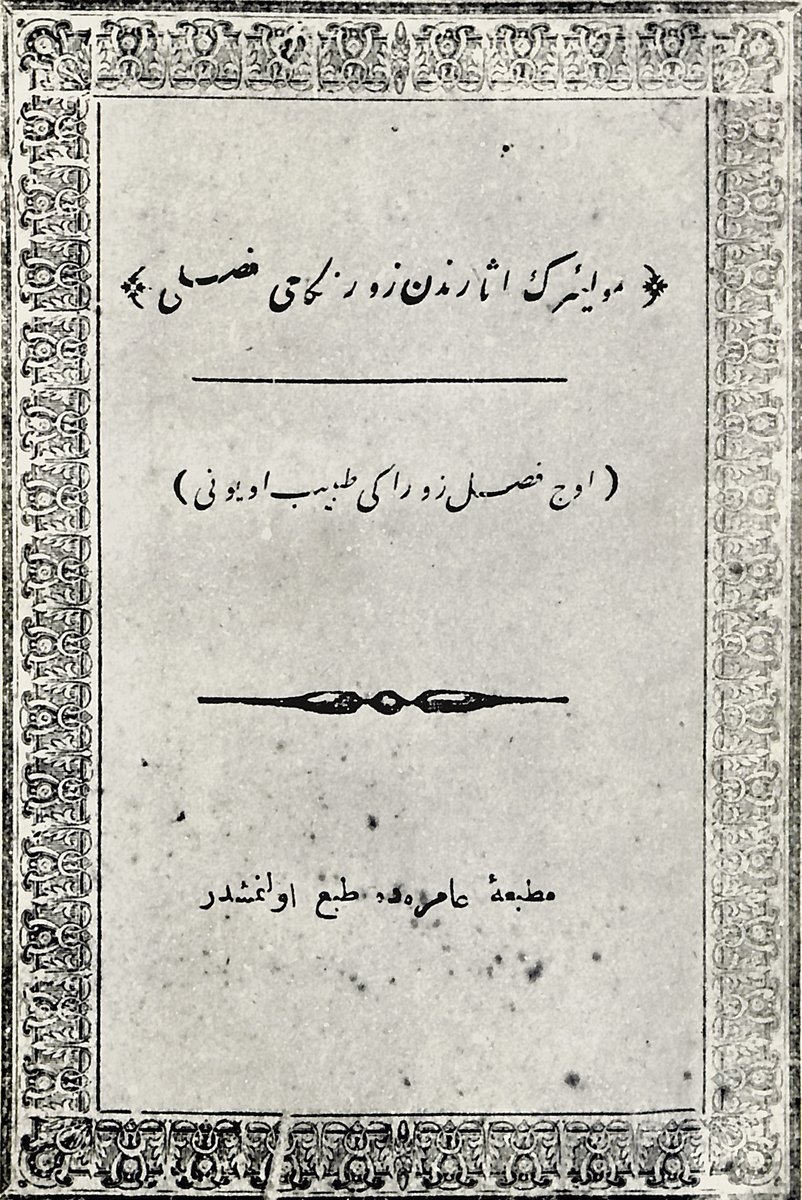 مولیئرك اثارندن زور نكاحی فصلی
(اوچ فصل زوراكی طبیب اویونی)
مطبعهٔ عامره‌ده طبع اولنمشدر